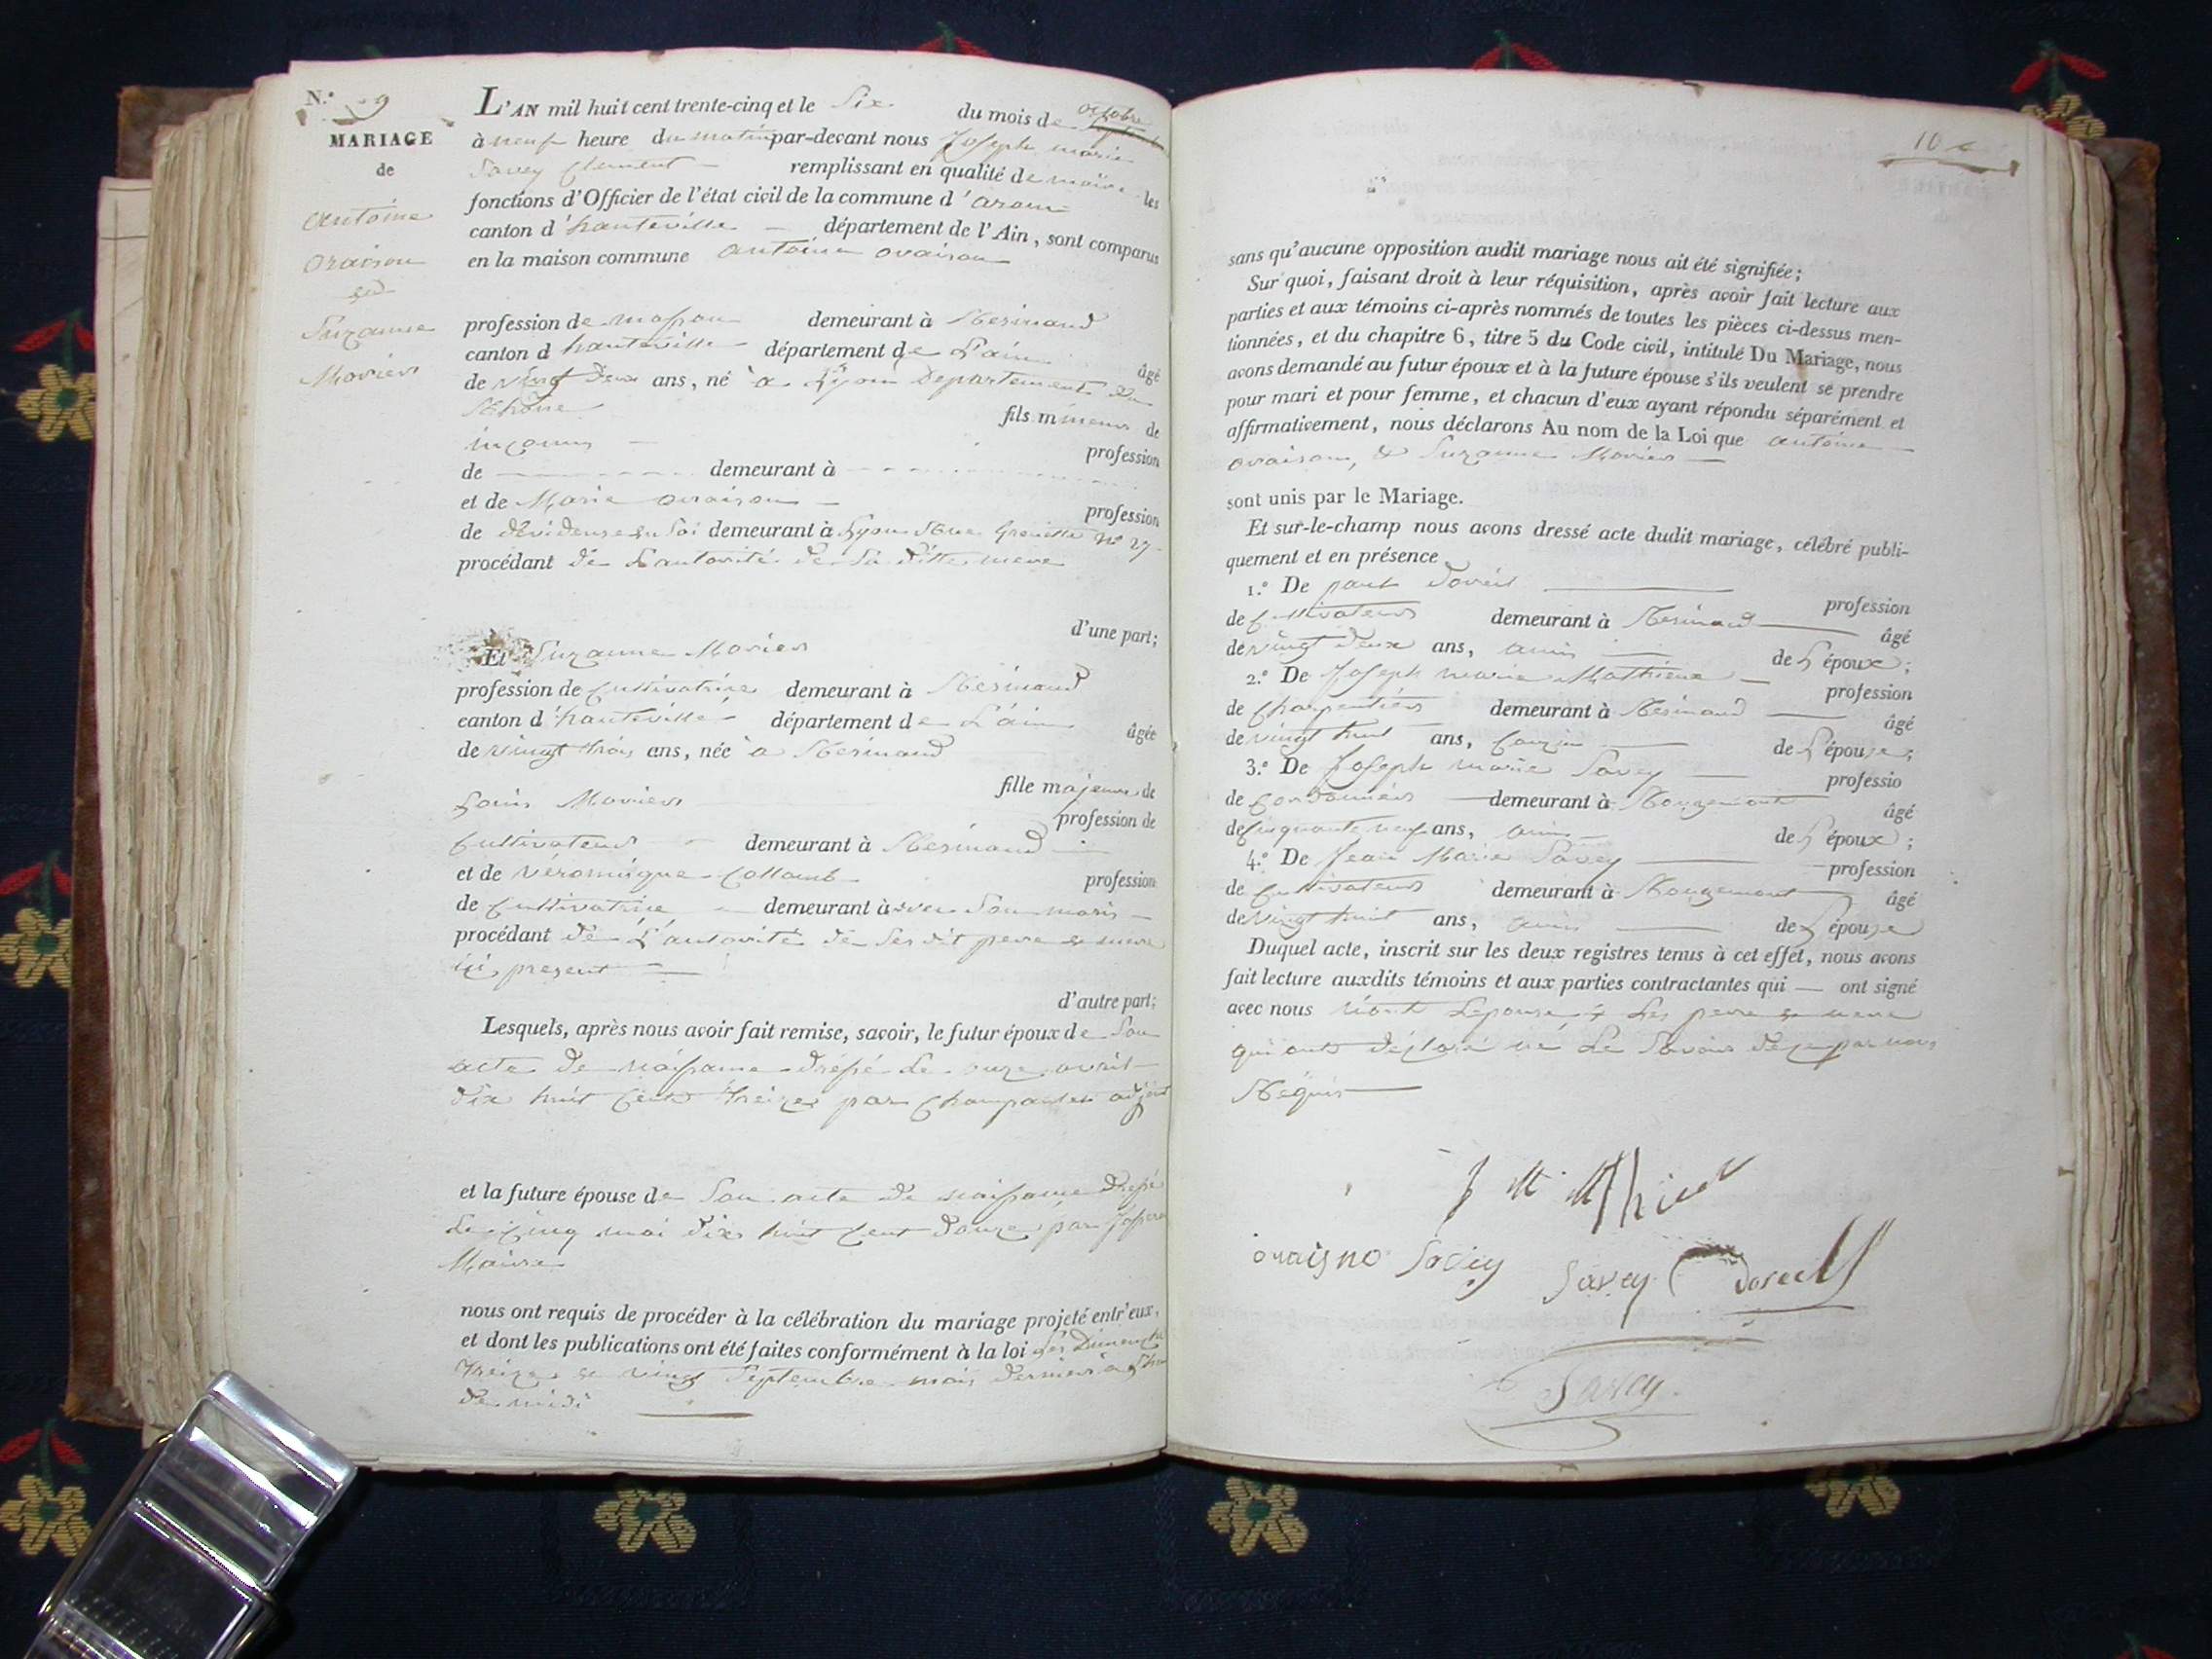 N.º 9
MARIAGE
de
antoine
oraison
et
Suzanne
Moriers
L'AN mil huit cent trente-cinq et le Six du mois de octobre
à neuf heure du matin par-devant nous Joseph marie
Savey Clement remplissant en qualité de maire les
fonctions d'Officier de l'état civil de la commune d'aranc
canton d'hauteville département de l'Ain, sont comparus
en la maison commune antoine oraison
profession de masson demeurant à Résinand
canton d hauteville département de L'ain âgé
de vingt deux ans, né à Lyon Departement du
Rhône fils mineur de
inconnu profession
de demeurant à
et de Marie oraison profession
de dévideuse en soi demeurant à Lyon Rue Grenette nº 27
procédant de L'autorité de Sa ditte mere
d'une part;
Et Suzanne Moriers
profession de Cultivatrice demeurant à Résinand
canton d'hauteville département de L'ain âgée
de vingt trois ans, née à Résinand
fille majeure de
Louis Moriers profession de
Cultivateur demeurant à Résinand
et de véronnique Collomb profession
de Cultivatrice demeurant à avec Son maris
procédant de L'autorité de Ses dit pere & mere
ici present
d'autre part;
Lesquels, après nous avoir fait remise, savoir, le futur époux de Son
acte de naissance dréssé Le onze avril
dix huit Cent treize par adjoint
et la future épouse de Son acte de naissance dressé
Le Cinq mai dix huit Cent douze par
Maire
nous ont requis de procéder à la célébration du mariage projeté entr'eux,
et dont les publications ont été faites conformément à la loi Les Dimanche
treize & vingt Septembre mois dernier a
de midi
sans qu'aucune opposition audit mariage nous ait été signifiée;
Sur quoi, faisant droit à leur réquisition, après avoir fait lecture aux
parties et aux témoins ci-après nommés de toutes les pièces ci-dessus men-
tionnées, et du chapitre 6, titre 5 du Code civil, intitulé Du Mariage, nous
avons demandé au futur époux et à la future épouse s'ils veulent se prendre
pour mari et pour femme, et chacun d'eux ayant répondu séparément et
affirmativement, nous déclarons Au nom de la Loi que antoine
oraison, & Suzanne Moriers
sont unis par le Mariage.
Et sur-le-champ nous avons dressé acte dudit mariage, célébré publi-
quement et en présence
1.º De paul profession
de Cultivateur demeurant à Résinand âgé
de vingt deux ans, amis de L'époux;
2.º De Joseph marie Mathieux profession
de Charpentiers demeurant à Résinand âgé
de vingt huit ans, Couzin de L'épouse;
3.º De Joseph marie Savey professio
de Cordonniers demeurant à Rougemont âgé
de Cinquante neuf ans, amis de L'époux;
4.º De Jean Marie Savey profession
de Cultivateurs demeurant à Rougemont âgé
de vingt huit ans, amis de L'épouse
Duquel acte, inscrit sur les deux registres tenus à cet effet, nous avons
fait lecture auxdits témoins et aux parties contractantes qui — ont signé
avec nous non L'epouse & Les pere & mere
qui ont déclaré né Le Savoir de ce par nous
Réquis
oraisno Savey Savey
Savey.